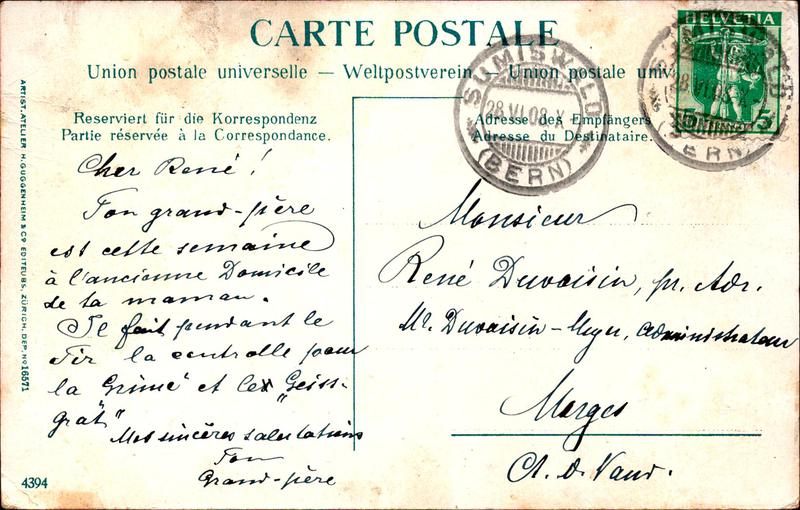 CARTE POSTALE
Union postale universelle — Weltpostverein — Union postale univ
Reserviert für die Korrespondenz
Partie réservée à la Correspondance.
Adresse des Empfängers
Adresse du Destinataire.
HELVETIA
5 5
SUMISWALD
28.VI.08.X
(BERN)
SUMISWALD
28.VI.08.X
(BERN)
Cher René!
Ton grand-père
est cette semaine
à l'ancienne Domicile
de ta maman.
Je fait pendant le
Tir la controlle pour
la Grimé et les „Geiss-
grat"
Mes sincères salutations
Ton
Grand-père
Monsieur
René Duvoisin, pr. Adr.
Mr. Duvoisin-Meyer, administrateur
Morges
Ct. d. Vaud.
ARTIST. ATELIER H. GUGGENHEIM & Co EDITEURS, ZÜRICH, DEP. No 16571
4394